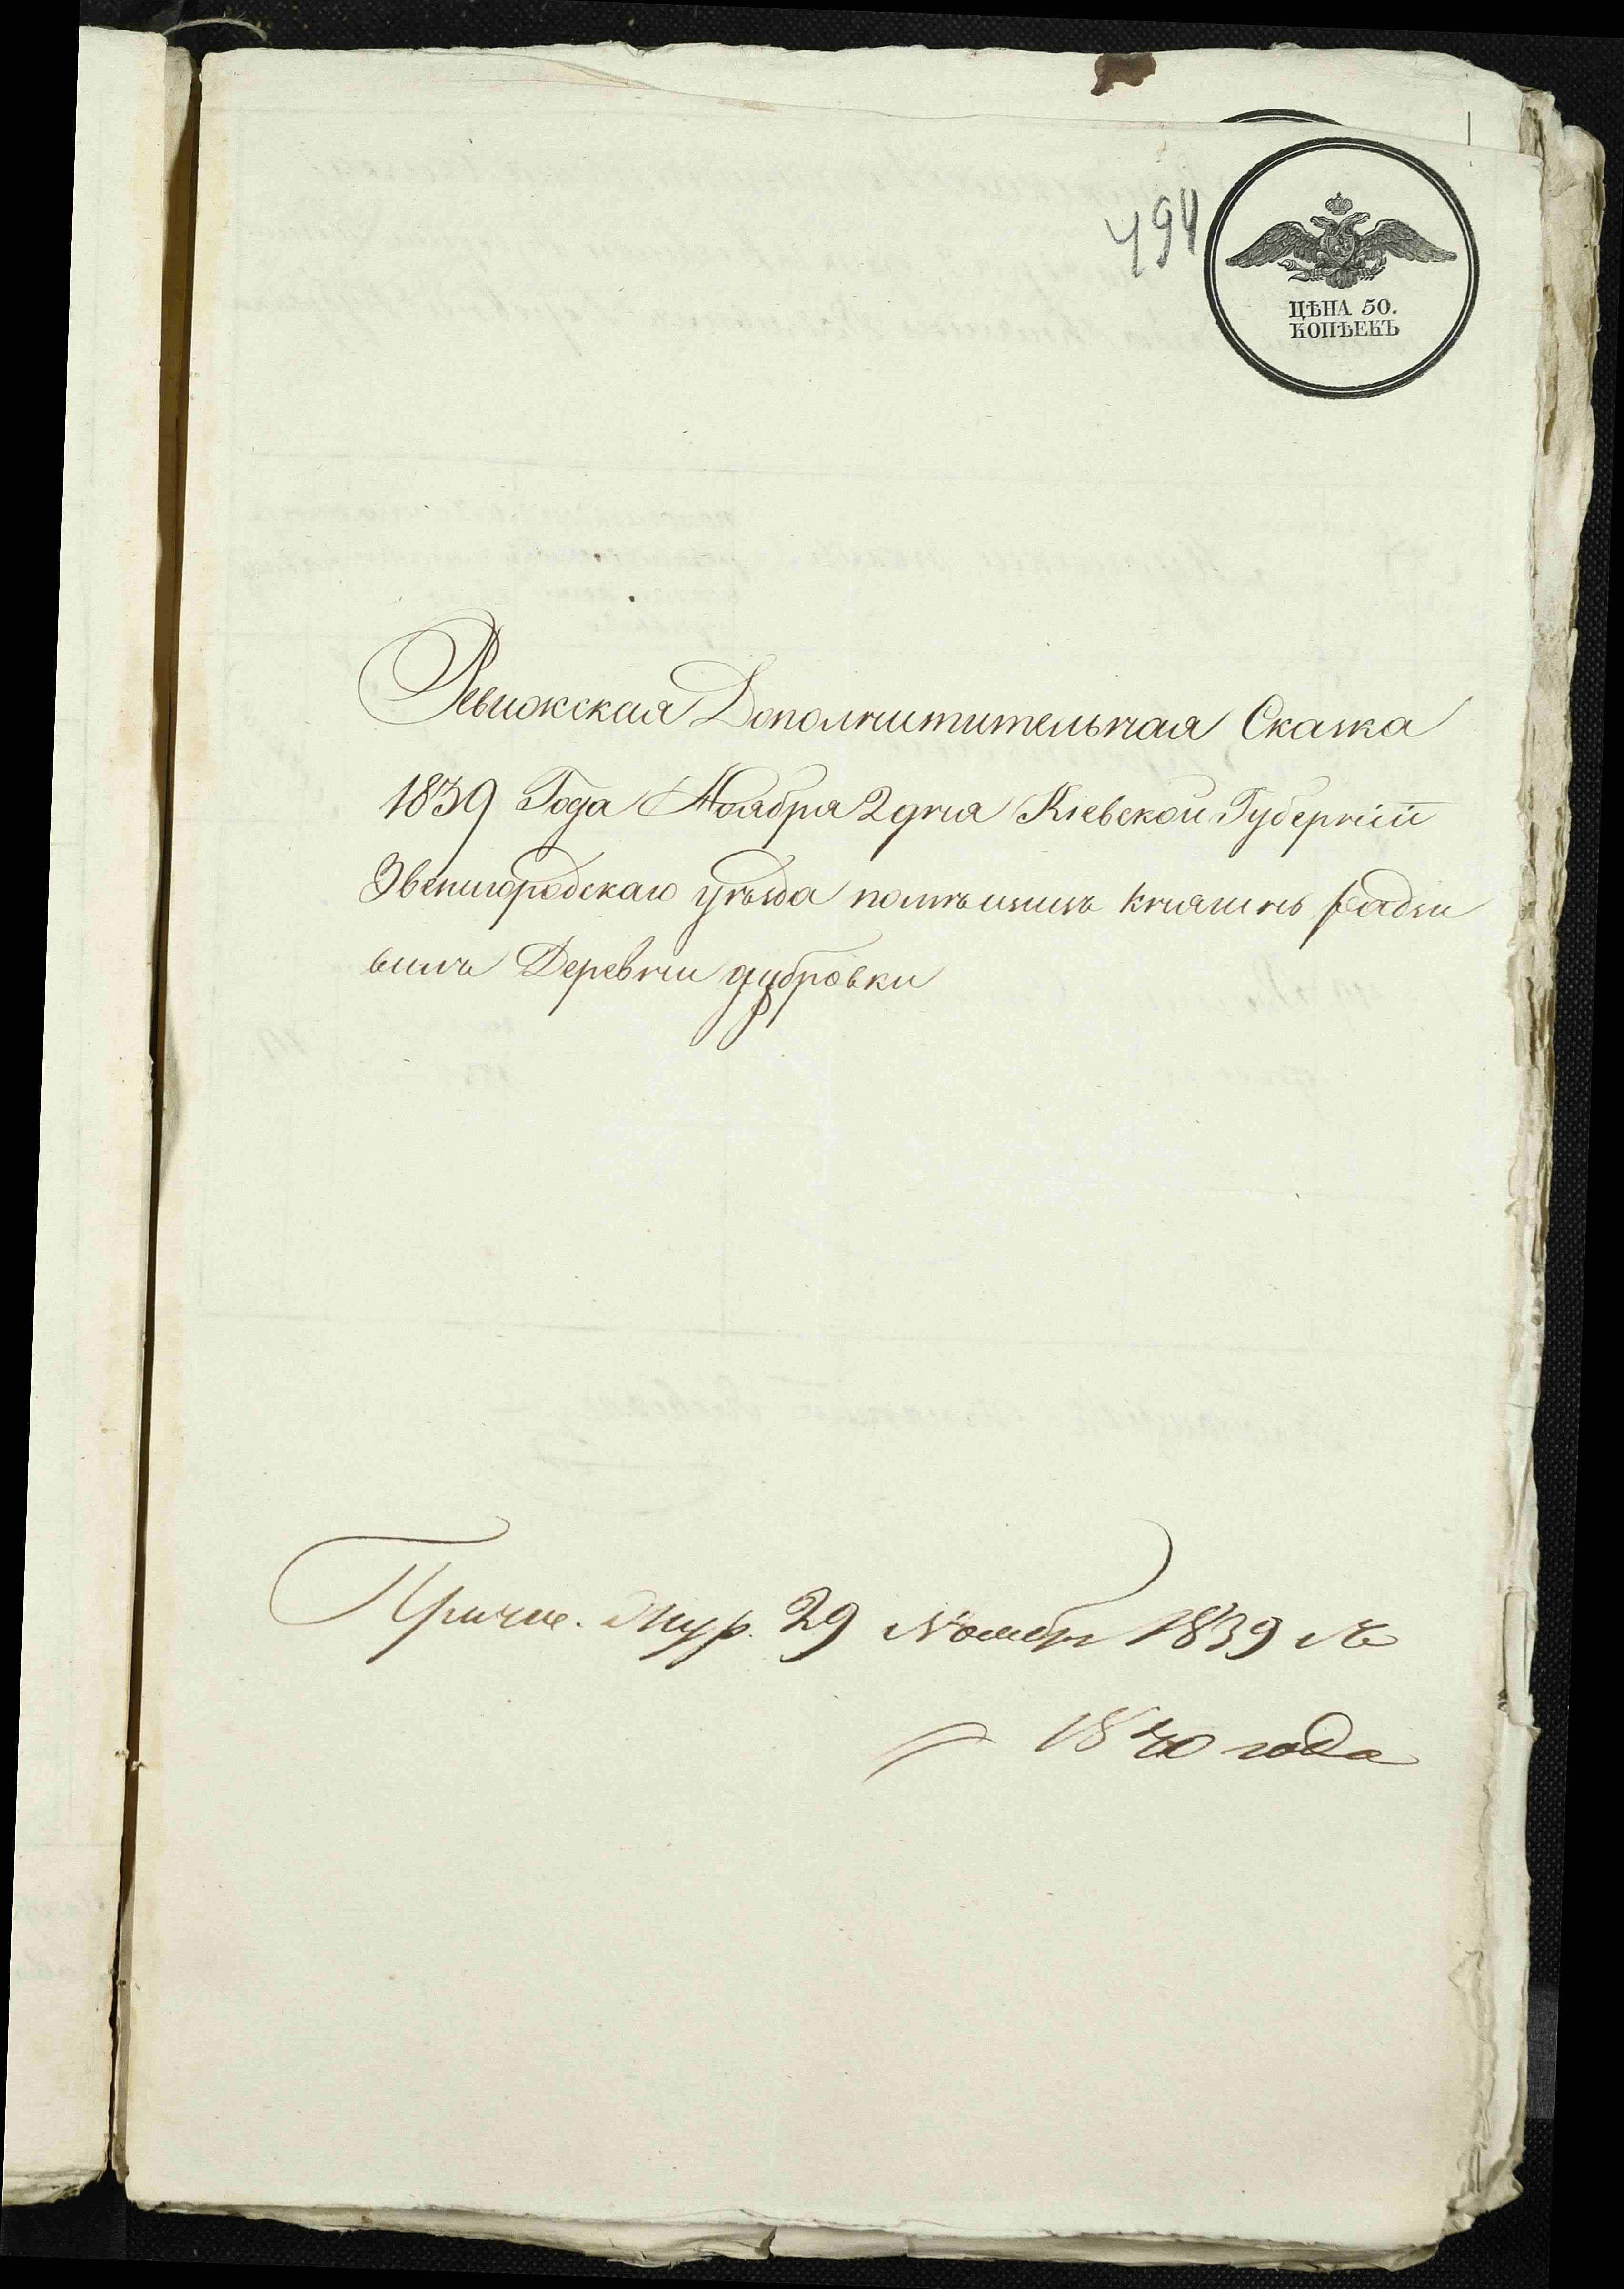 494
ЦѢНА 50.
КОПѢЕКЪ
Ревижская Дополнитительная Сказка
1839 Года Ноября 2 дня Кіевской Губерніи
Звенигородскаго уѣзда помѣщицъ княжнъ Радзи
вилъ Деревни дубровки
Причис. Жур. 29 Ноября 1839 №
1840 года